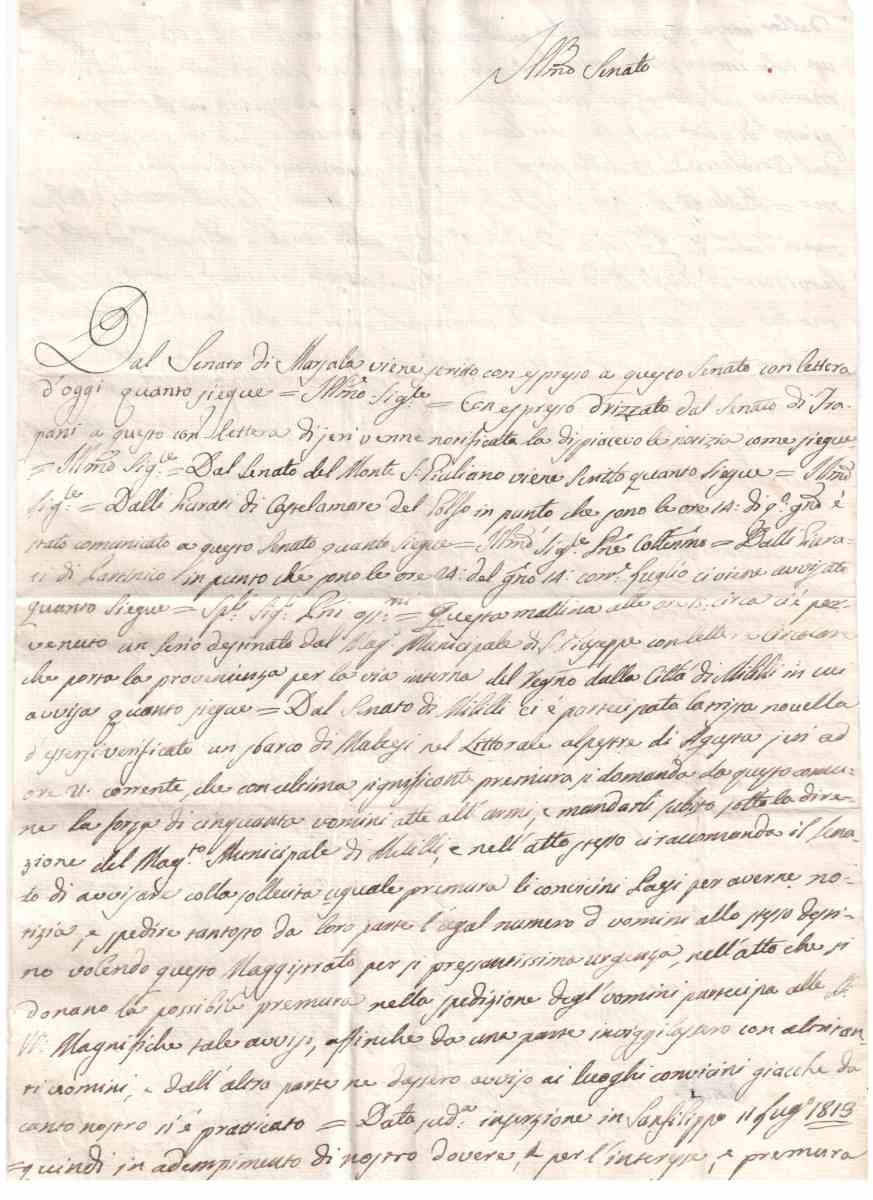 Ill.mo Senato
Dal Senato di Marsala viene scritto con espresso a questo Senato con lettera
d'oggi quanto siegue = Ill.mo Sig.re = Con espresso drizzato dal Senato di Tra-
pani a questo con lettera di jeri venne notificata la dispiacevole notizia come siegue
= Ill.mo Sig.re = Dal Senato del Monte S. Giuliano viene scritto quanto siegue = Ill.mo
Sig.re = Dalli Giurati di Castelamare del Golfo in punto che sono le ore 14: di q.o g.no è
stato comunicato a questo Senato quanto siegue = Ill.mo Sig.re = Dalli Giura-
ti di in punto che sono le ore 24: del g.no 14: corr.e luglio ci viene avvisato
quanto siegue = Questa mattina alle ore circa ci è per-
venuto un serio destinato dal Mag.o Municipale di S. Giuseppe con lettera Circolare
che porta la provenienza per la via interna del Regno dalla Città di Mililli in cui
avvisa quanto siegue = Dal Senato di Mililli ci è partecipata la trista novella
d'essersi verificato un sbarco di Maltesi nel Littorale alpestre di Agusta jeri ad
ore 21. corrente, che con ultima significante premura si domanda da questo comu-
ne la forza di cinquanta uomini atte all'armi, e mandarli subito sotto la dire-
zione del Mag.to Municipale di Mililli, e nell'atto stesso ci raccomanda il Sena-
to di avvisare colla sollecita uguale premura li convicini Paesi per averne no-
tizia, e spedire tantosto da loro parte l'egal numero d uomini allo stesso desti-
no volendo questo Maggistrato per si pressantissima urgenza, nell'atto che si
donano la possibile premura nella spedizione degl'uomini partecipa alle
VV. Magnifiche tale avviso, affinche da una parte invigilassero con altritan-
ti uomini, e dall'altra parte ne dassero avviso ai luoghi convicini giacche da
canto nostro si è pratticato = Data sud.a inserzione in Sanfilippo 11 lug.o 1813
= quindi in adempimento di nostro dovere, e per l'interesse, e premura